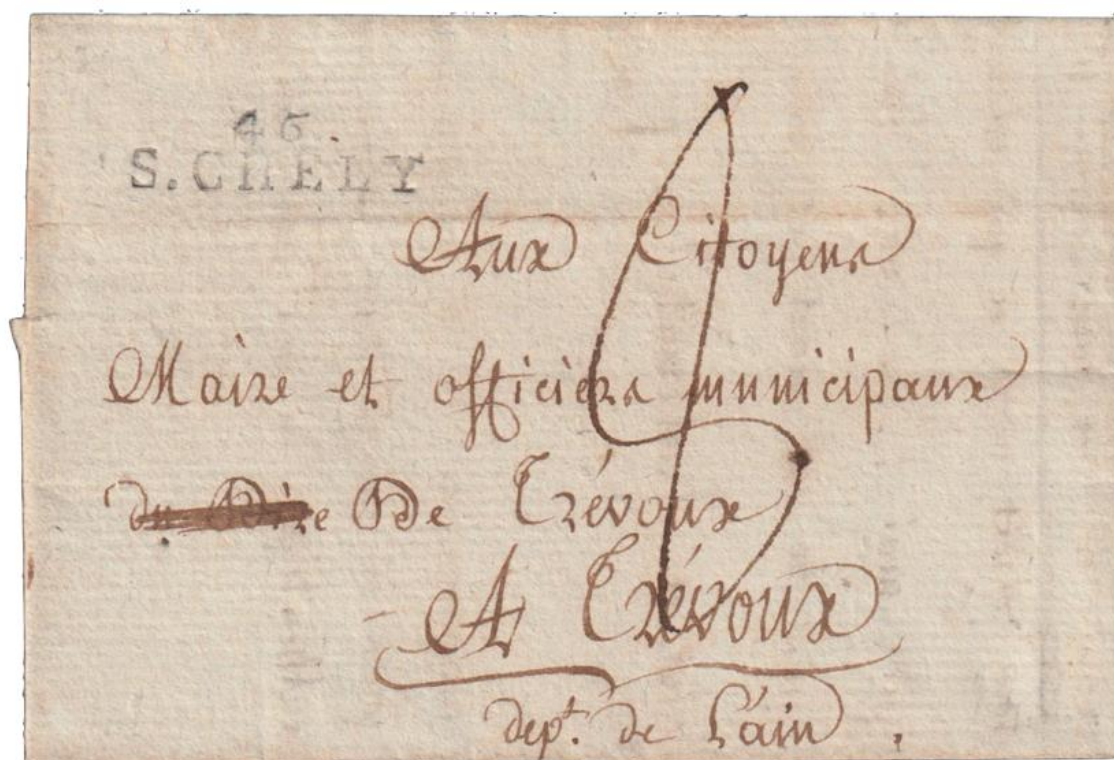 46.
S. CHELY
Aux Citoyens
Maire et officiers municipaux
De Trévoux
A Trévoux
dept. de L'ain.